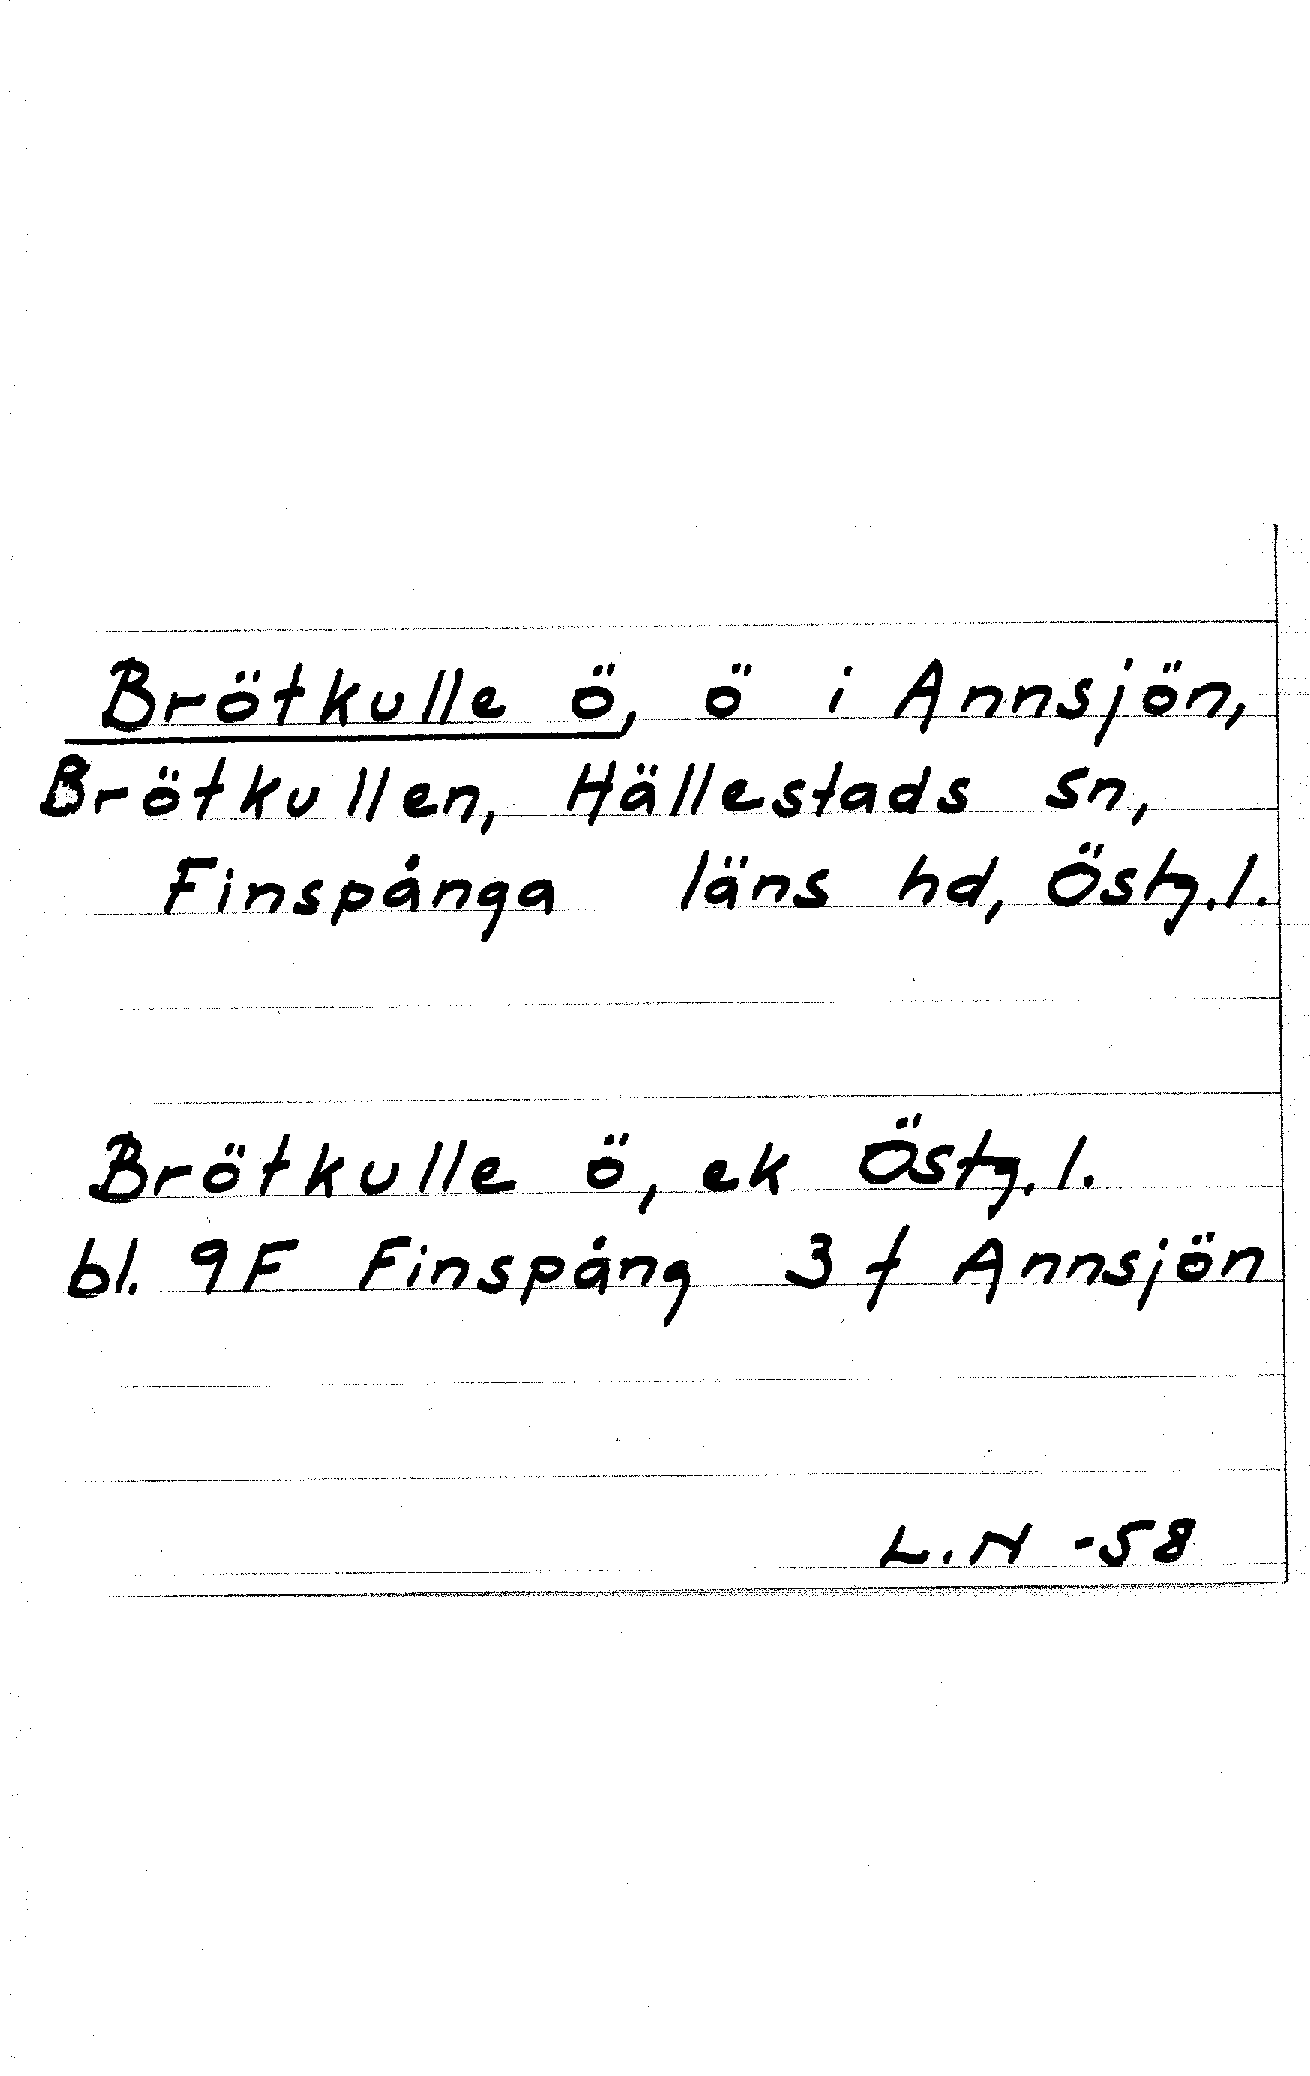 Brötkulle ö, ö i Annsjön,
Brötkullen, Hällestads sn,
Finspånga läns hd, Östg.l.
Brötkulle ö, ek Östg.l.
bl. 9F Finspång 3 f Annsjön
L.N -58